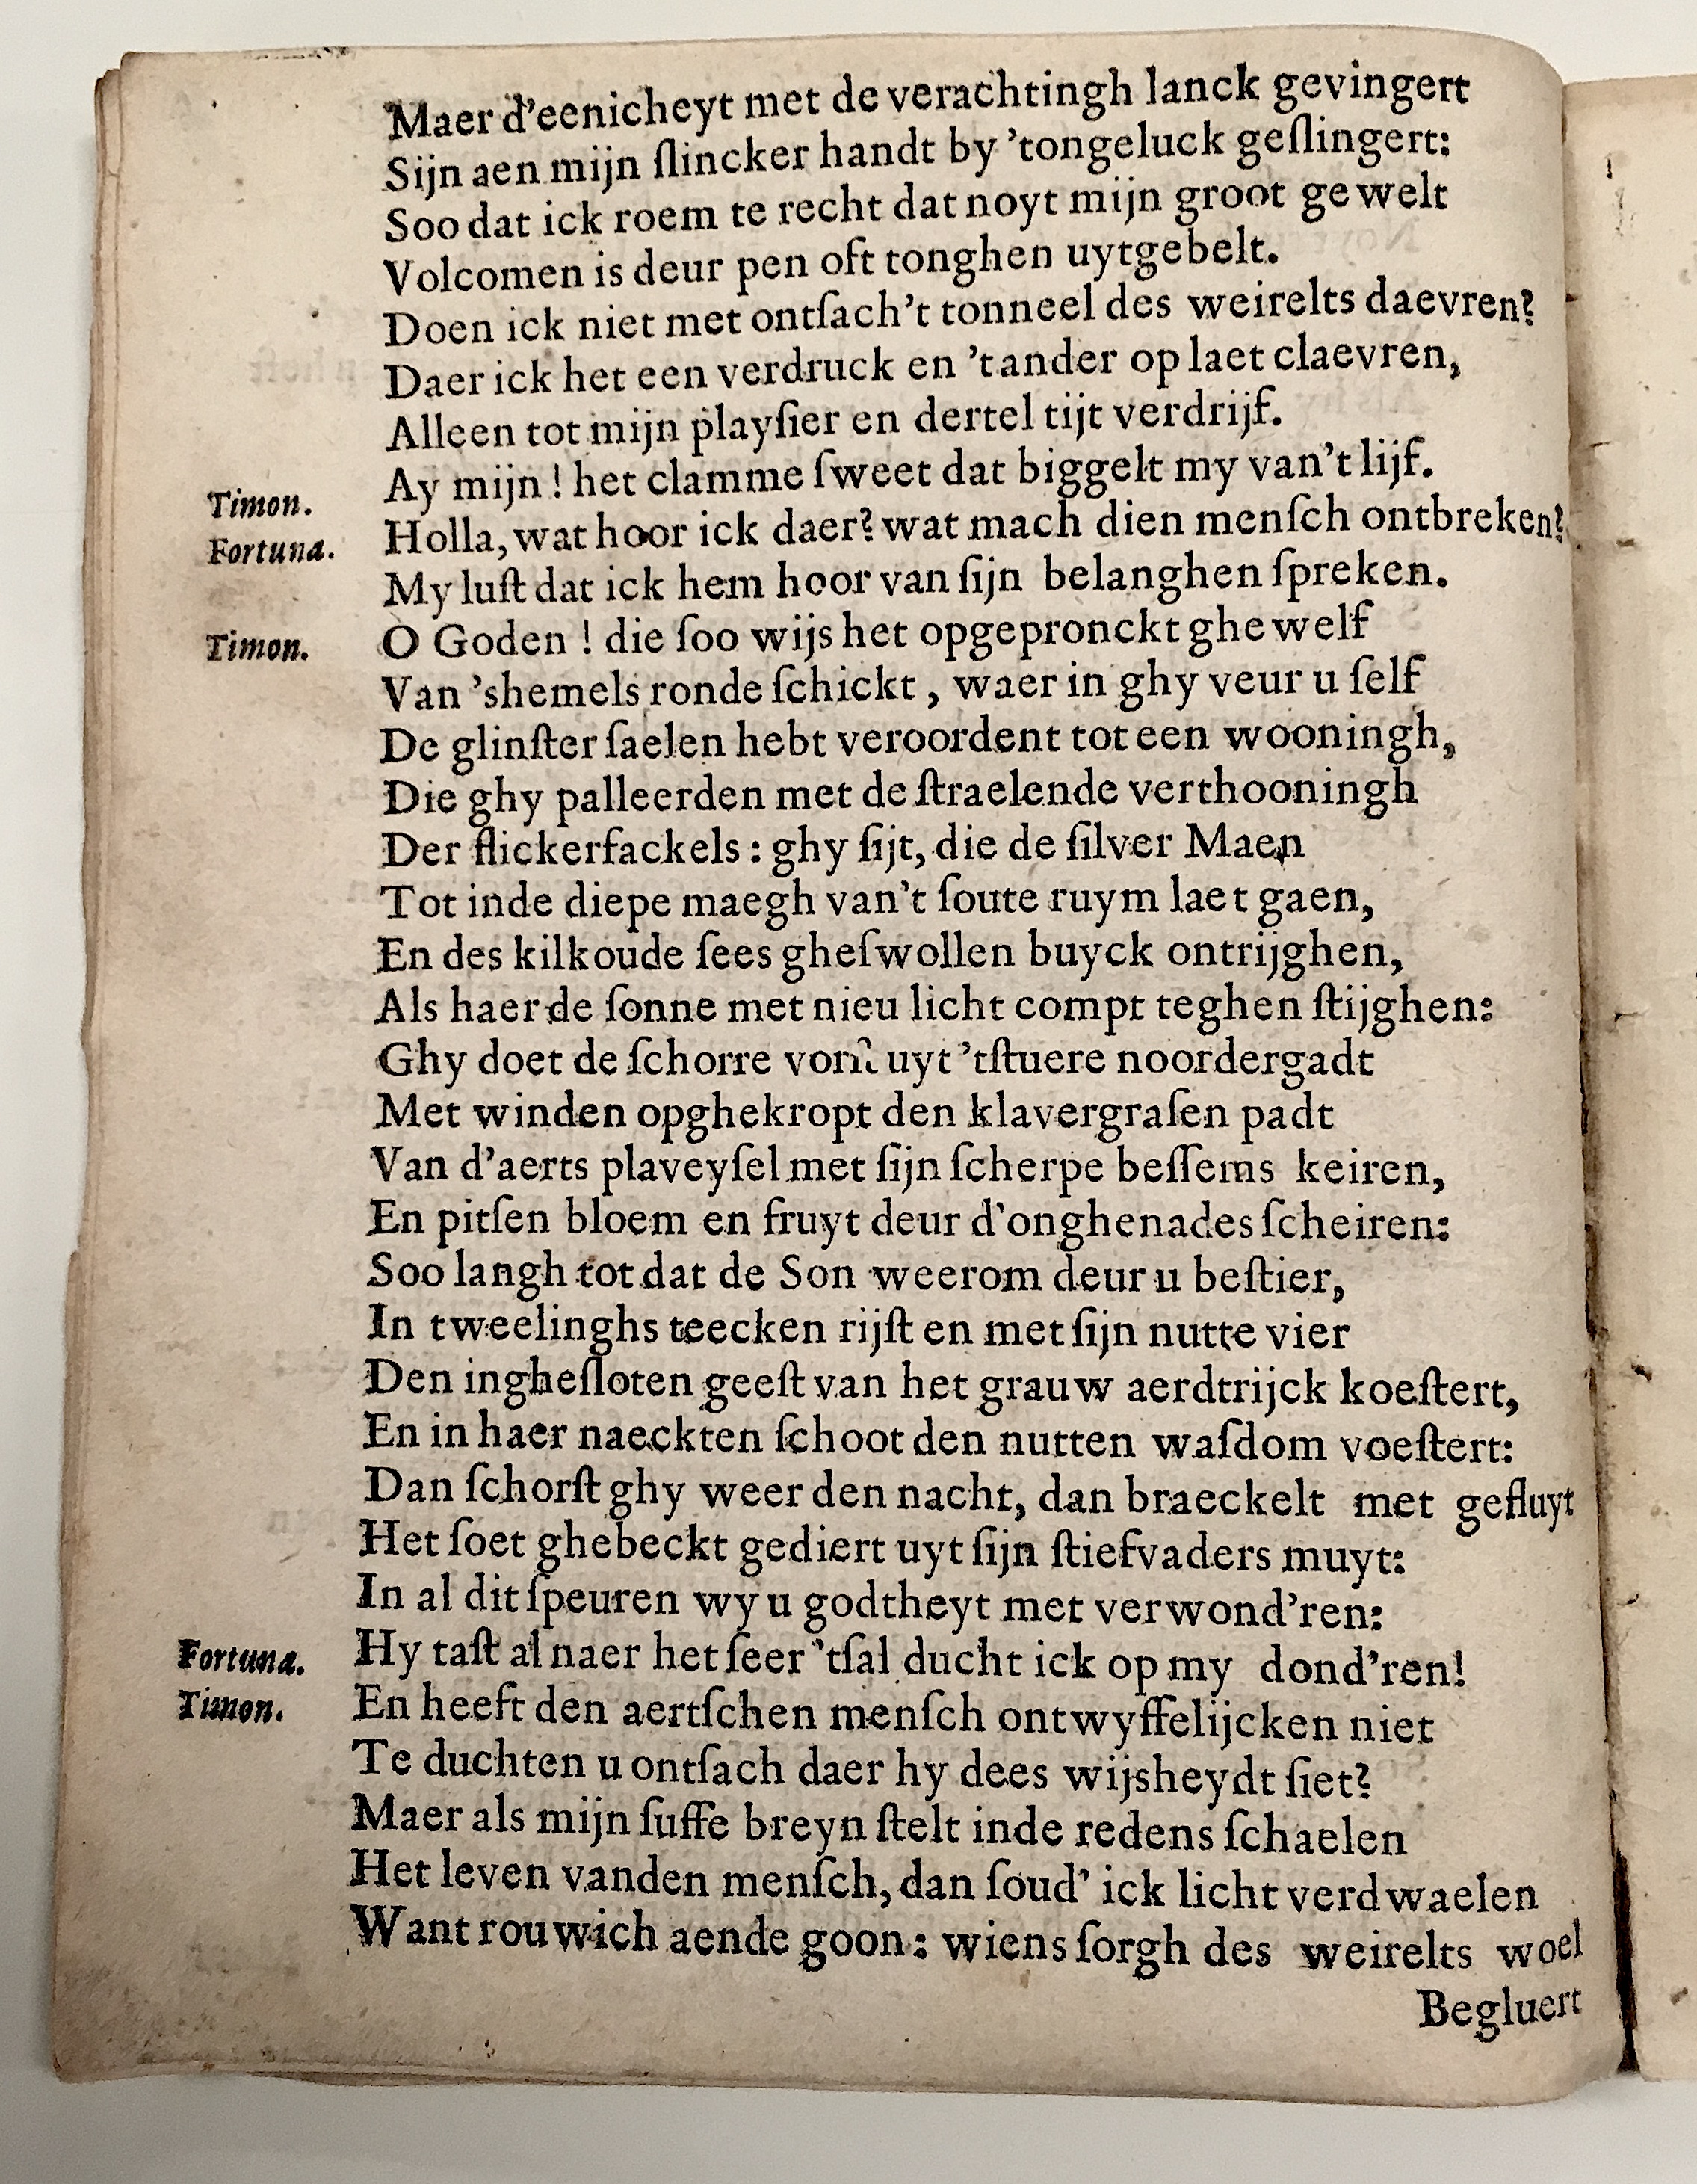 Maer d'eenicheyt met de verachtingh lanck gevingert
Sijn aen mijn ſlincker handt by 'tongeluck geſlingert:
Soo dat ick roem te recht dat noyt mijn groot gewelt
Volcomen is deur pen oft tonghen uytgebelt.
Doen ick niet met ontſach't tonneel des weirelts daevren?
Daer ick het een verdruck en 't ander op laet claevren,
Alleen tot mijn playſier en dertel tijt verdrijf.
Timon. Ay mijn! het clamme ſweet dat biggelt my van't lijf.
Fortuna. Holla, wat hoor ick daer? wat mach dien menſch ontbreken?
My luſt dat ick hem hoor van ſijn belanghen ſpreken.
Timon. O Goden! die ſoo wijs het opgepronckt ghewelf
Van 'shemels ronde ſchickt, waer in ghy veur u ſelf
De glinſter ſaelen hebt veroordent tot een wooningh,
Die ghy palleerden met de ſtraelende verthooningh
Der flickerfackels: ghy ſijt, die de ſilver Maen
Tot inde diepe maegh van't ſoute ruym laet gaen,
En des kilkoude ſees gheſwollen buyck ontrijghen,
Als haer de ſonne met nieu licht compt teghen ſtijghen:
Ghy doet de ſchorre uyt 'tſtuere noordergadt
Met winden opghekropt den klavergraſen padt
Van d'aerts plaveyſel met ſijn ſcherpe beſſems keiren,
En pitſen bloem en fruyt deur d'onghenades ſcheiren:
Soo langh tot dat de Son weerom deur u beſtier,
In tweelinghs teecken rijſt en met ſijn nutte vier
Den ingheſloten geeſt van het grauw aerdtrijck koeſtert,
En in haer naeckten ſchoot den nutten waſdom voeſtert:
Dan ſchorſt ghy weer den nacht, dan braeckelt met gefluyt
Het ſoet ghebeckt gediert uyt ſijn ſtiefvaders muyt:
In al dit ſpeuren wy u godtheyt met verwond'ren:
Fortuna. Hy taſt al naer het ſeer 'tſal ducht ick op my dond'ren!
Timon. En heeft den aertſchen menſch ontwyffelijcken niet
Te duchten u ontſach daer hy dees wijsheydt ſiet?
Maer als mijn ſuffe breyn ſtelt inde redens ſchaelen
Het leven vanden menſch, dan ſoud' ick licht verdwaelen
Want rouwich aende goon: wiens ſorgh des weirelts woel
Begluert